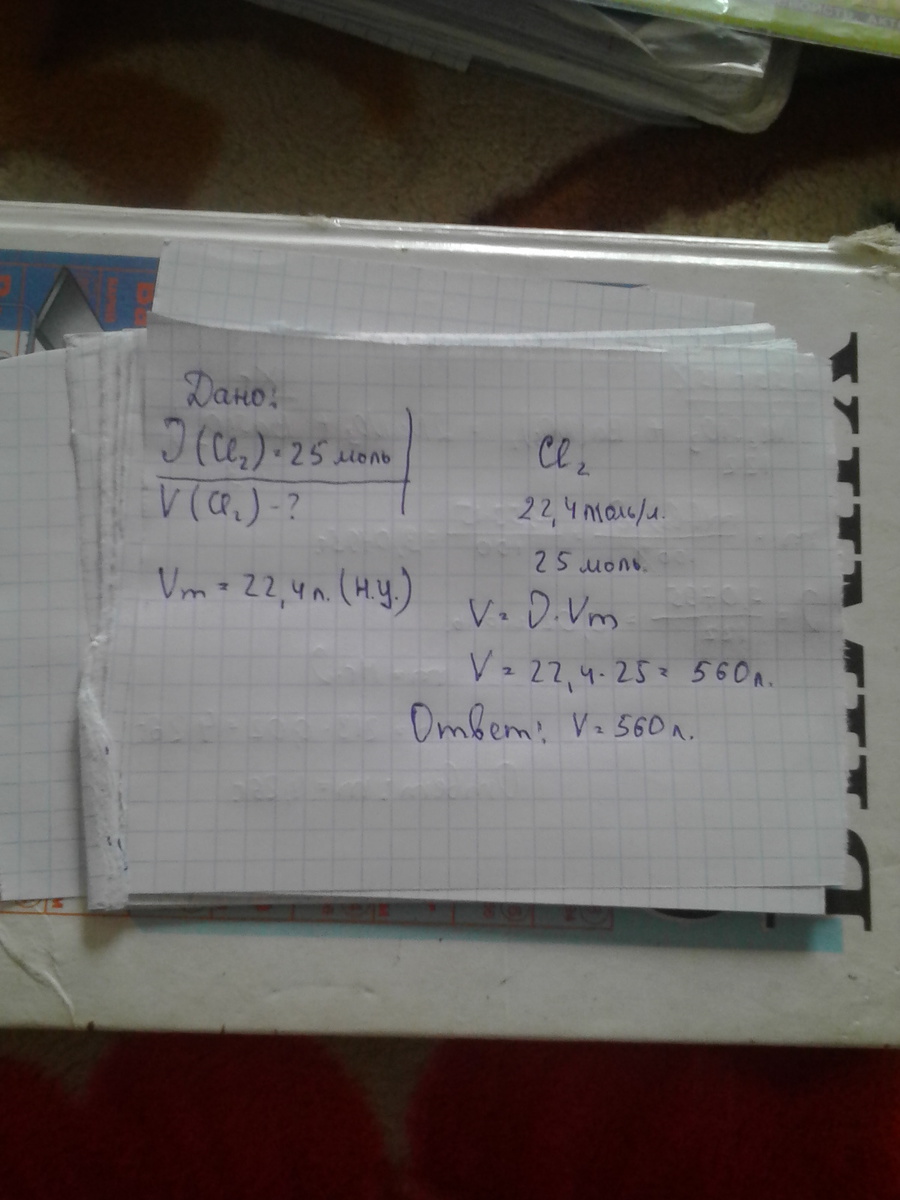 Дано:
J (Cl₂) = 25 моль
V (Cl₂) - ?
Vm = 22,4 л. (н.у.)
Cl₂
22,4 моль/л.
25 моль.
V = J · Vm
V = 22,4 · 25 = 560 л.
Ответ: V = 560 л.